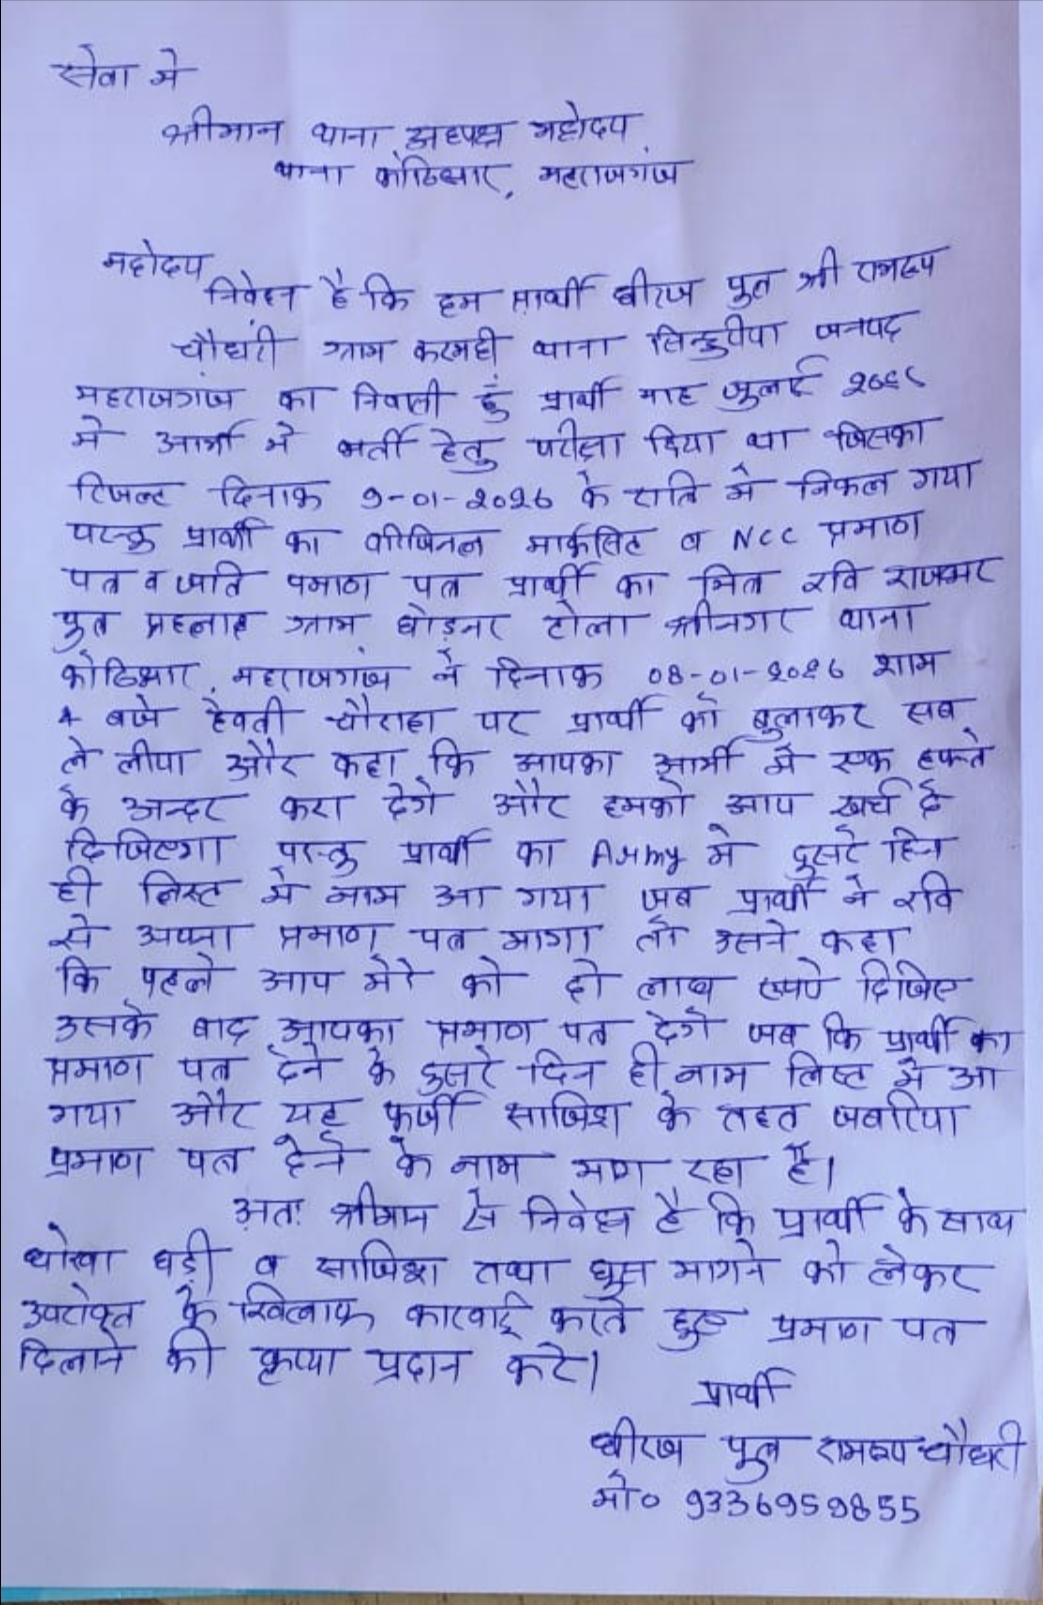 सेवा मे
श्रीमान थाना अध्यक्ष महोदय
थाना कोठिभार, महराजगंज
महोदय
निवेदन है कि हम प्रार्थी धीरज पुत्र श्री रामरूप
चौधरी ग्राम करमही थाना सिन्दुरीया जनपद
महराजगंज का निवासी हुं प्रार्थी माह जुलाई
मे आर्मी मे भर्ती हेतु परीक्षा दिया था जिसका
रिजल्ट दिनाक 9-01-2026 के रात्रि मे निकल गया
परन्तु प्रार्थी का ओरिजिनल मार्कसिट व NCC प्रमाण
पत्र व जाति प्रमाण पत्र प्रार्थी का मित्र रवि राजभर
पुत्र प्रहलाद ग्राम टोला श्रीनगर थाना
कोठिभार, महराजगंज ने दिनाक 08-01-2026 शाम
4 बजे चौराहा पर प्रार्थी को बुलाकर सब
ले लीया और कहा कि आपका आर्मी मे एक हफ्ते
के अन्दर करा देगे और हमको आप खर्च दे
दिजिएगा परन्तु प्रार्थी का Army मे दुसरे दिन
ही लिस्ट मे नाम आ गया जब प्रार्थी ने रवि
से अपना प्रमाण पत्र मागा तो उसने कहा
कि पहले आप मेरे को दो लाख रूपये दिजिए
उसके बाद आपका प्रमाण पत्र देगे जब कि प्रार्थी का
प्रमाण पत्र देने के दुसरे दिन ही नाम लिस्ट मे आ
गया और यह फर्जी साजिश के तहत जबरिया
प्रमाण पत्र देने के नाम माग रहा है।
अतः श्रीमान से निवेदन है कि प्रार्थी के साथ
धोखा धड़ी व साजिश तथा घुस मागने को लेकर
उपरोक्त के खिलाफ कारवाई करते हुए प्रमाण पत्र
दिलाने की कृपा प्रदान करे।
प्रार्थी
धीरज पुत्र रामरूप चौधरी
मो० 9336959855